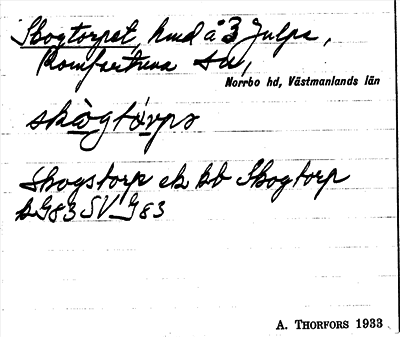 Skogtorpet, hmd å 3 Julpa,
Romfartuna sn,
Norrbo hd, Västmanlands län
skògtó̱rpə
Skogstorp ek kb Skogtorp
bG83SV G83
A. THORFORS 1933